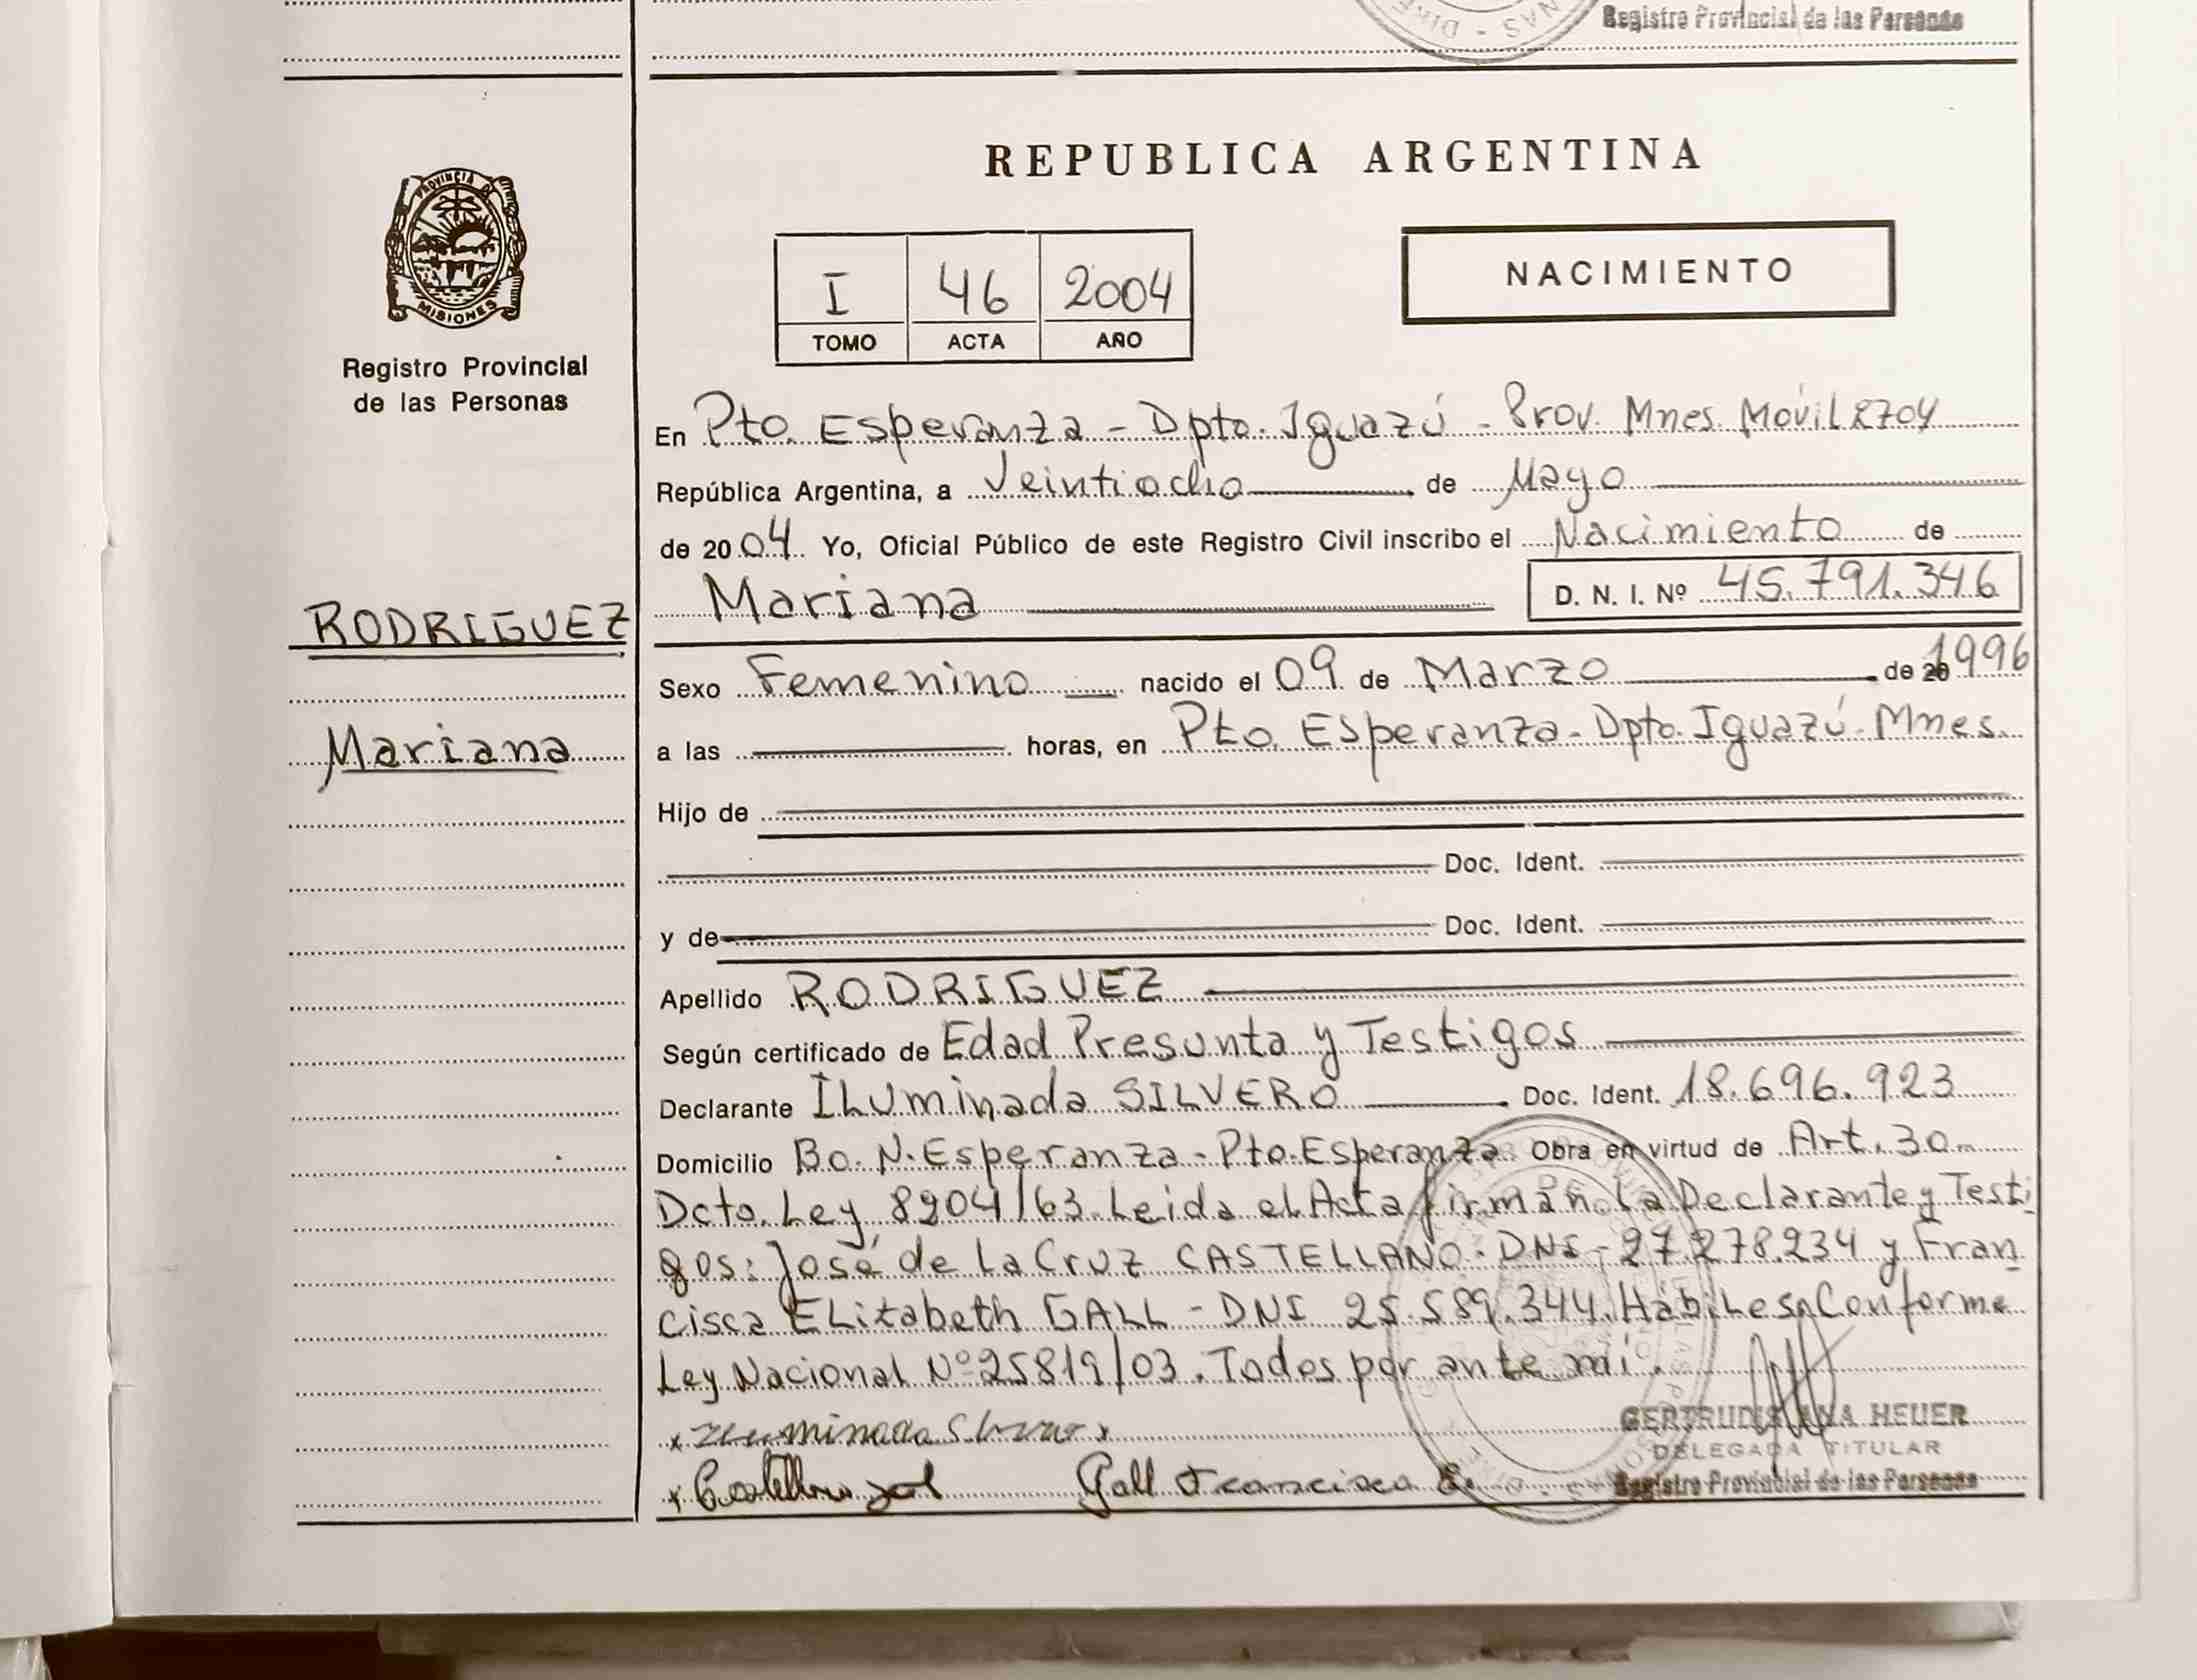 Registro Provincial de las Personas
REPUBLICA ARGENTINA
PROVINCIA DE
MISIONES
Registro Provincial
de las Personas
I 46 2004
TOMO ACTA AÑO
NACIMIENTO
En Pto. Esperanza - Dpto. Iguazú - Prov. Mnes. Móvil 8704
República Argentina, a Veintiocho de Mayo
de 2004 Yo, Oficial Público de este Registro Civil inscribo el Nacimiento de
Mariana D. N. I. Nº 45.791.346
RODRIGUEZ
Mariana
Sexo Femenino nacido el 09 de Marzo de 1996
a las horas, en Pto. Esperanza - Dpto. Iguazú - Mnes.
Hijo de
Doc. Ident.
y de Doc. Ident.
Apellido RODRIGUEZ
Según certificado de Edad Presunta y Testigos
Declarante Iluminada SILVERO Doc. Ident. 18.696.923
Domicilio Bo. N. Esperanza - Pto. Esperanza Obra en virtud de Art. 30
Dcto. Ley 8204/63. Leida el Acta firman la Declarante y Testi
gos: José de la Cruz CASTELLANO - DNI - 27.278.234 y Fran
cisca Elizabeth GALL - DNI 25.589.344. Hábiles. Conforme
Ley Nacional Nº 25819/03. Todos por ante mi.
GERTRUDIS ANA HEUER
DELEGADA TITULAR
Gall Francisca E.
Registro Provincial de las Personas